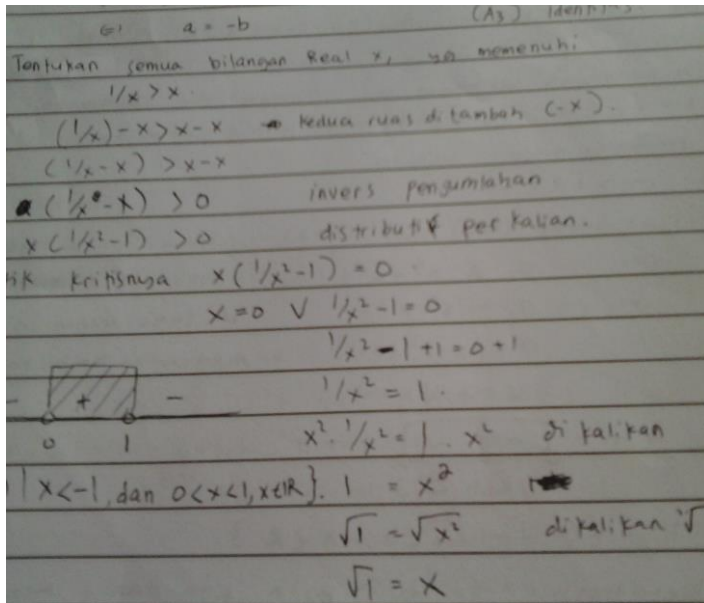 ⇔ a = -b (A3)
Tentukan semua bilangan Real x, yg memenuhi
1/x > x.
(1/x) - x > x - x → kedua ruas ditambah (-x).
(1/x - x) > x - x
(1/x - x) > 0 invers penjumlahan
x (1/x² - 1) > 0 distributif perkalian.
tik kritisnya x (1/x² - 1) = 0
x = 0 ∨ 1/x² - 1 = 0
1/x² - 1 + 1 = 0 + 1
- + - 1/x² = 1.
0 1 x² · 1/x² = 1 . x² di kalikan
| x < -1, dan 0 < x < 1, x ∈ IR }. 1 = x²
√1 = √x² dikalikan √
√1 = x